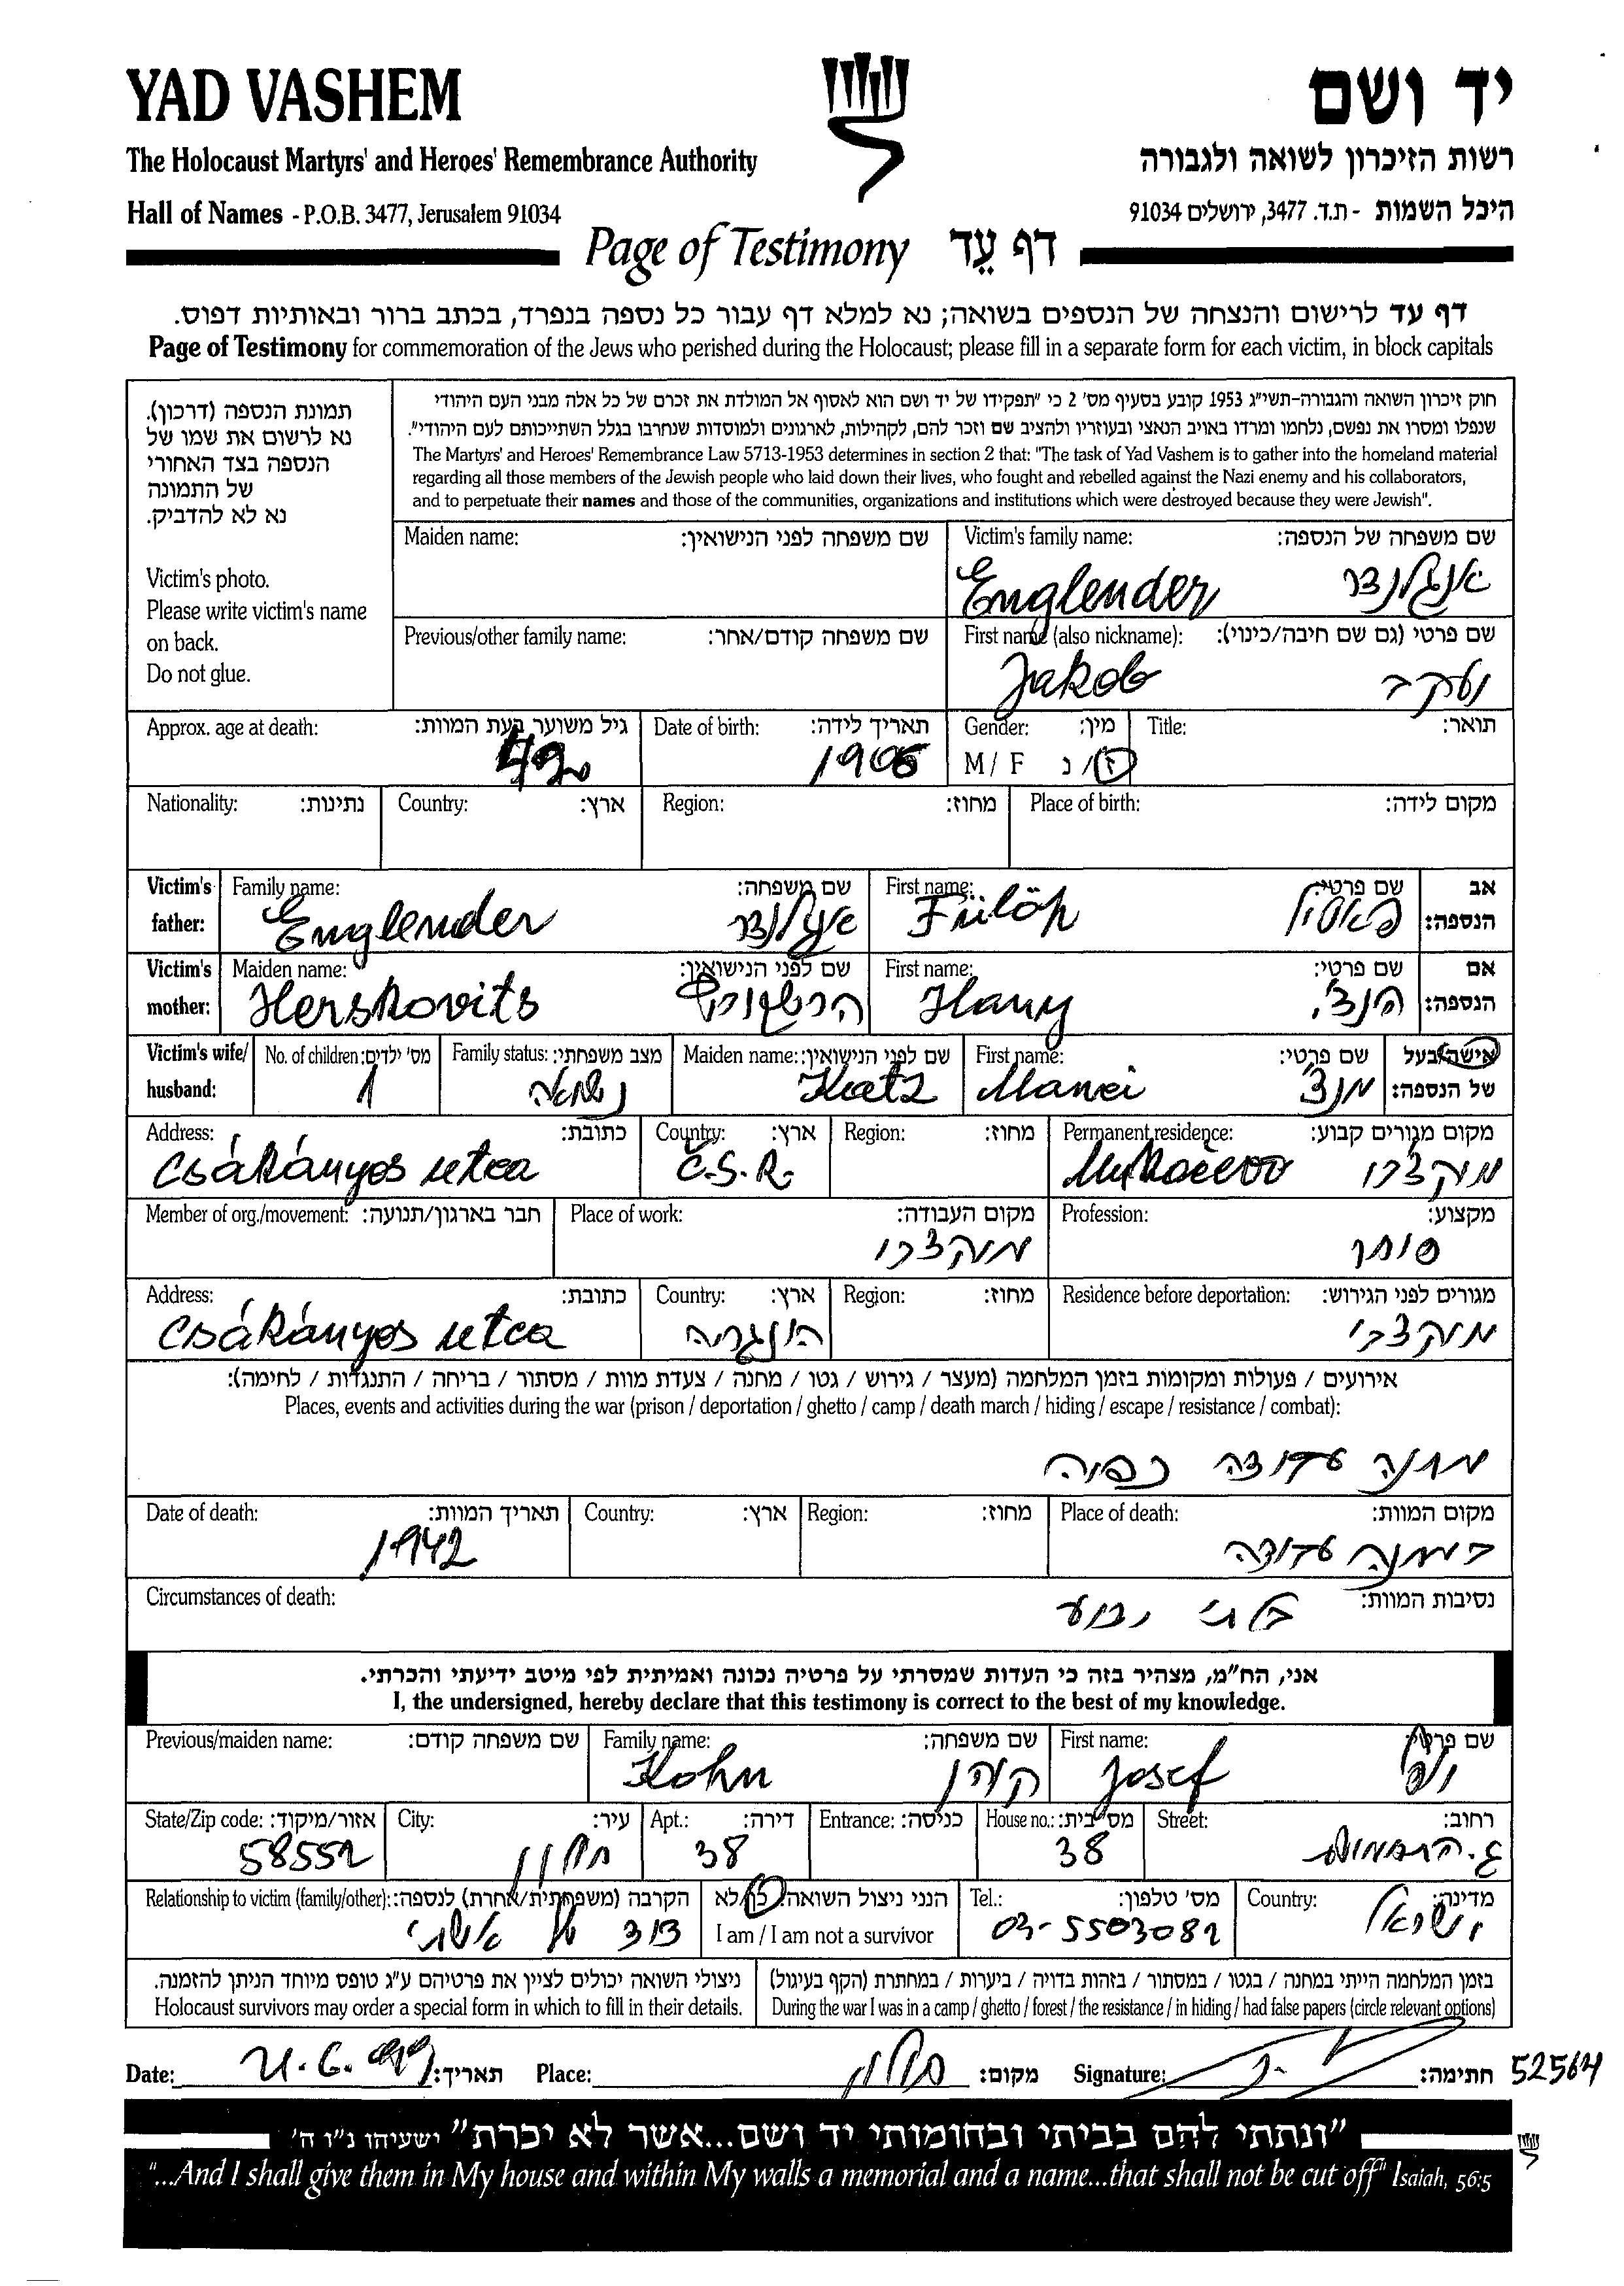 YAD VASHEM
יד ושם
The Holocaust Martyrs' and Heroes' Remembrance Authority
רשות הזיכרון לשואה ולגבורה
Hall of Names - P.O.B. 3477, Jerusalem 91034
היכל השמות - ת.ד. 3477, ירושלים 91034
Page of Testimony דף עֵד
דף עד לרישום והנצחה של הנספים בשואה; נא למלא דף עבור כל נספה בנפרד, בכתב ברור ובאותיות דפוס.
Page of Testimony for commemoration of the Jews who perished during the Holocaust; please fill in a separate form for each victim, in block capitals
תמונת הנספה (דרכון).
נא לרשום את שמו של
הנספה בצד האחורי
של התמונה
נא לא להדביק.
Victim's photo.
Please write victim's name
on back.
Do not glue.
חוק זיכרון השואה והגבורה-תשי"ג 1953 קובע בסעיף מס' 2 כי "תפקידו של יד ושם הוא לאסוף אל המולדת את זכרם של כל אלה מבני העם היהודי
שנפלו ומסרו את נפשם, נלחמו ומרדו באויב הנאצי ובעוזריו ולהציב שם וזכר להם, לקהילות, לארגונים ולמוסדות שנחרבו בגלל השתייכותם לעם היהודי".
The Martyrs' and Heroes' Remembrance Law 5713-1953 determines in section 2 that: "The task of Yad Vashem is to gather into the homeland material
regarding all those members of the Jewish people who laid down their lives, who fought and rebelled against the Nazi enemy and his collaborators,
and to perpetuate their names and those of the communities, organizations and institutions which were destroyed because they were Jewish".
Maiden name: שם משפחה לפני הנישואין:
Victim's family name: שם משפחה של הנספה:
Englender אנגלנדר
Previous/other family name: שם משפחה קודם/אחר:
First name (also nickname): שם פרטי (גם שם חיבה/כינוי):
Jakob יעקב
Approx. age at death: גיל משוער בעת המוות:
Date of birth: תאריך לידה:
1906
Gender: מין:
M / F ז/נ
Title: תואר:
Nationality: נתינות:
Country: ארץ:
Region: מחוז:
Place of birth: מקום לידה:
Victim's father: אב הנספה:
Family name: שם משפחה:
Englender אנגלנדר
First name: שם פרטי:
Fülöp
Victim's mother: אם הנספה:
Maiden name: שם לפני הנישואין:
Herskovits הרשקוביץ
First name: שם פרטי:
Hany הנצ'י
Victim's wife/ husband: אישה/בעל של הנספה:
No. of children: מס' ילדים:
1
Family status: מצב משפחתי:
נשוי
Maiden name: שם לפני הנישואין:
Katz
First name: שם פרטי:
Manci מנצ'י
Address: כתובת:
Csákányos utca
Country: ארץ:
Č.S.R.
Region: מחוז:
Permanent residence: מקום מגורים קבוע:
Mukačevo מוקצ'בו
Member of org./movement: חבר בארגון/תנועה:
Place of work: מקום העבודה:
מוקצ'בו
Profession: מקצוע:
סוחר
Address: כתובת:
Csákányos utca
Country: ארץ:
הונגריה
Region: מחוז:
Residence before deportation: מגורים לפני הגירוש:
מוקצ'בו
אירועים / פעולות ומקומות בזמן המלחמה (מעצר / גירוש / גטו / מחנה / צעדת מוות / מסתור / בריחה / התנגדות / לחימה):
Places, events and activities during the war (prison / deportation / ghetto / camp / death march / hiding / escape / resistance / combat):
מחנה עבודה כפויה
Date of death: תאריך המוות:
1942
Country: ארץ:
Region: מחוז:
Place of death: מקום המוות:
במחנה עבודה
Circumstances of death: נסיבות המוות:
בלתי ידוע
אני, הח"מ, מצהיר בזה כי העדות שמסרתי על פרטיה נכונה ואמיתית לפי מיטב ידיעתי והכרתי.
I, the undersigned, hereby declare that this testimony is correct to the best of my knowledge.
Previous/maiden name: שם משפחה קודם:
Family name: שם משפחה:
Kohn קוהן
First name: שם פרטי:
Josef יוסף
State/Zip code: אזור/מיקוד:
58552
City: עיר:
חולון
Apt.: דירה:
38
Entrance: כניסה:
House no.: מס' בית:
38
Street: רחוב:
Relationship to victim (family/other): הקרבה (משפחתית/אחרת) לנספה:
דוד של אשתי
הנני ניצול השואה: כן/לא
I am / I am not a survivor
Tel.: מס' טלפון:
03-5503082
Country: מדינה:
ישראל
ניצולי השואה יכולים לציין את פרטיהם ע"ג טופס מיוחד הניתן להזמנה.
Holocaust survivors may order a special form in which to fill in their details.
בזמן המלחמה הייתי במחנה / בגטו / במסתור / בזהות בדויה / ביערות / במחתרת (הקף בעיגול)
During the war I was in a camp / ghetto / forest / the resistance / in hiding / had false papers (circle relevant options)
Date: 21.6.99 תאריך: Place: חולון מקום: Signature: חתימה: 52564
"ונתתי להם בביתי ובחומותי יד ושם...אשר לא יכרת" ישעיהו נ"ו ה'
"...And I shall give them in My house and within My walls a memorial and a name...that shall not be cut off" Isaiah, 56:5